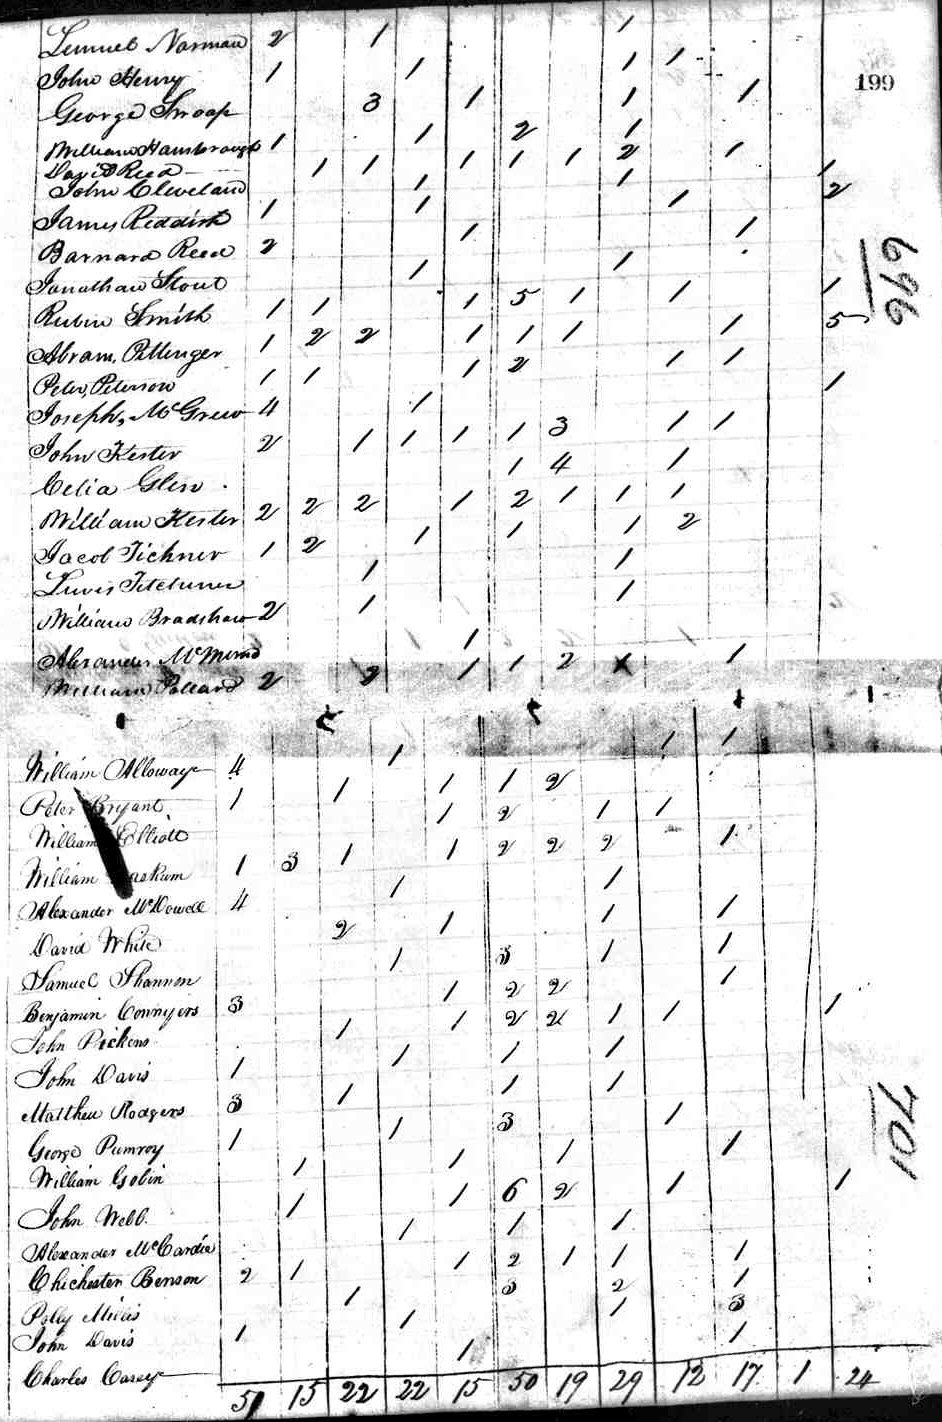 Lemuel Norman 2 1 1
John Henry 1 1 1 1
199
George Shoap 3 1 1 1
William Hansbrough 1 1 2 1
David Reed 1 1 1 1 1 2 1
John Cleveland 1 1 1
James Reddish 1 1 1 2
Barnard Reed 2 1 1
Jonathan Stout 1 1
696
Rubin Smith 1 1 1 5 1 1 1
Abram, Pittenger 1 2 2 1 1 1 1 5
Peter, Peterson 1 1 1 2 1 1
Joseph, McGrew 4 1 1
John Kester 2 1 1 1 1 3 1 1
Celia Glen 1 4 1
William Kester 2 2 2 1 2 1 1 1
Jacob Tichner 1 2 1 1 1 2
Lewis Titchner 1 1
William Bradshaw 2 1 1
Alexander 1
William Pollard 2 2 1 1 2 1
William Alloway 4 1 1 1
Peter Bryant 1 1 1 1 2
William Elliott 1 2 1 1
William 1 3 1 1 2 2 2 1
Alexander McDowell 4 1 1
David White 2 1 1 1
Samuel Shannon 1 3 1 1
Benjamin Connyers 3 1 2 2 1
John Pickens 1 1 2 2 1 1 1
John Davis 1 1 1 1
701
Matthew Rodgers 3 1 1 1
George Pumroy 1 1 3 1
William Gobin 1 1 1 1
John Webb. 1 1 6 2 1 1
Alexander McCardie 1 1 1
Chichester Benson 2 1 1 2 1 1 1
Polly Millis 1 3 2 1
John Davis 1 1 1 3
Charles Casey 1 1
51 15 22 22 15 50 19 29 12 17 1 24